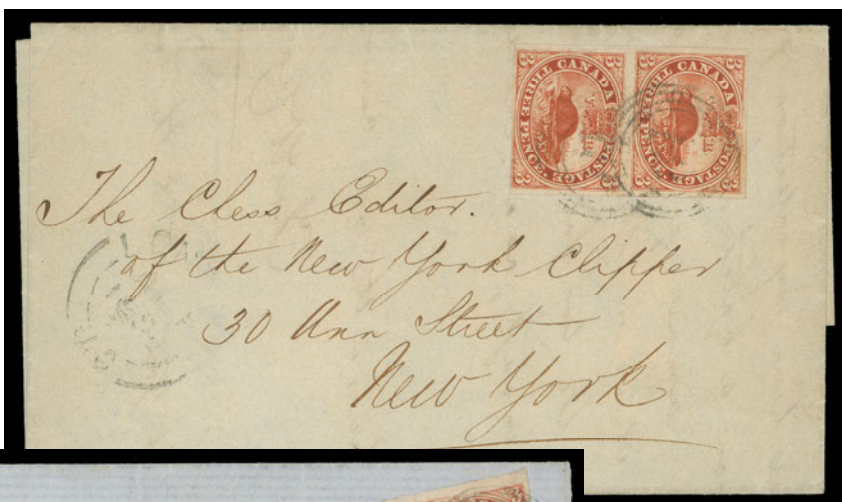 CANADA POSTAGE THREE PENCE
3 3 3 3
CANADA POSTAGE THREE PENCE
3 3 3 3
The Chess Editor.
of the New York Clipper
30 Ann Street
New York